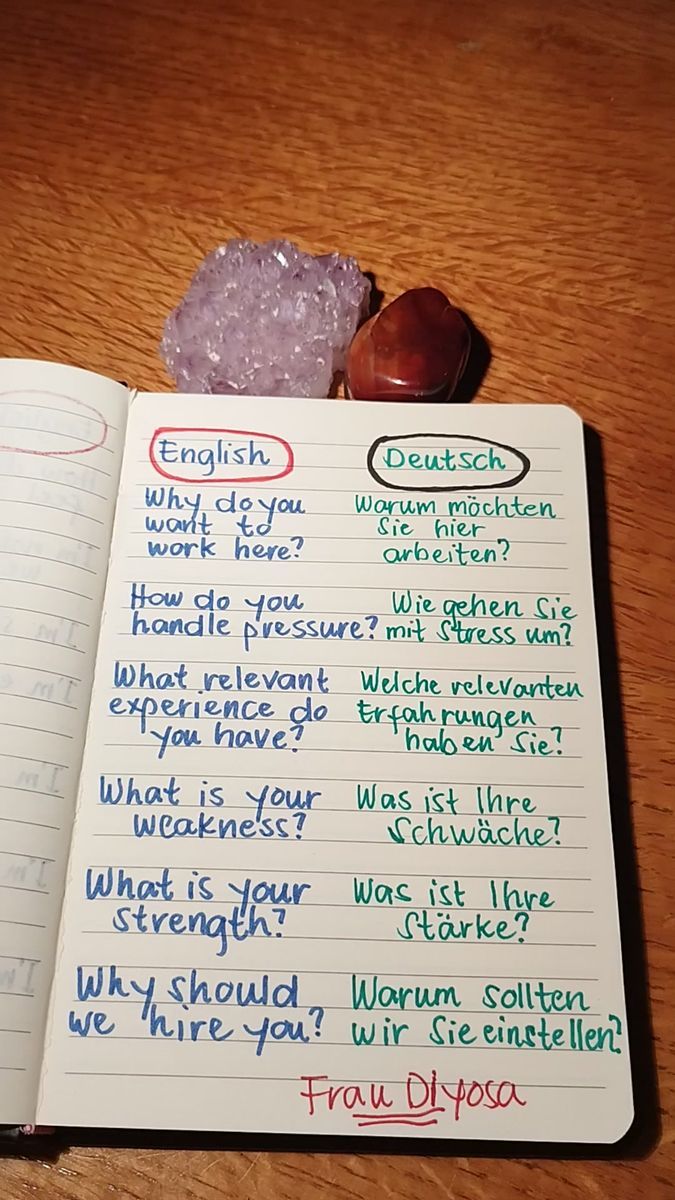 English
Deutsch
Why do you
want to
work here?
Warum möchten
Sie hier
arbeiten?
How do you
handle pressure?
Wie gehen Sie
mit Stress um?
What relevant
experience do
you have?
Welche relevanten
Erfahrungen
haben Sie?
What is your
weakness?
Was ist Ihre
Schwäche?
What is your
strength?
Was ist Ihre
Stärke?
Why should
we hire you?
Warum sollten
wir Sie einstellen?
Frau Diyosa